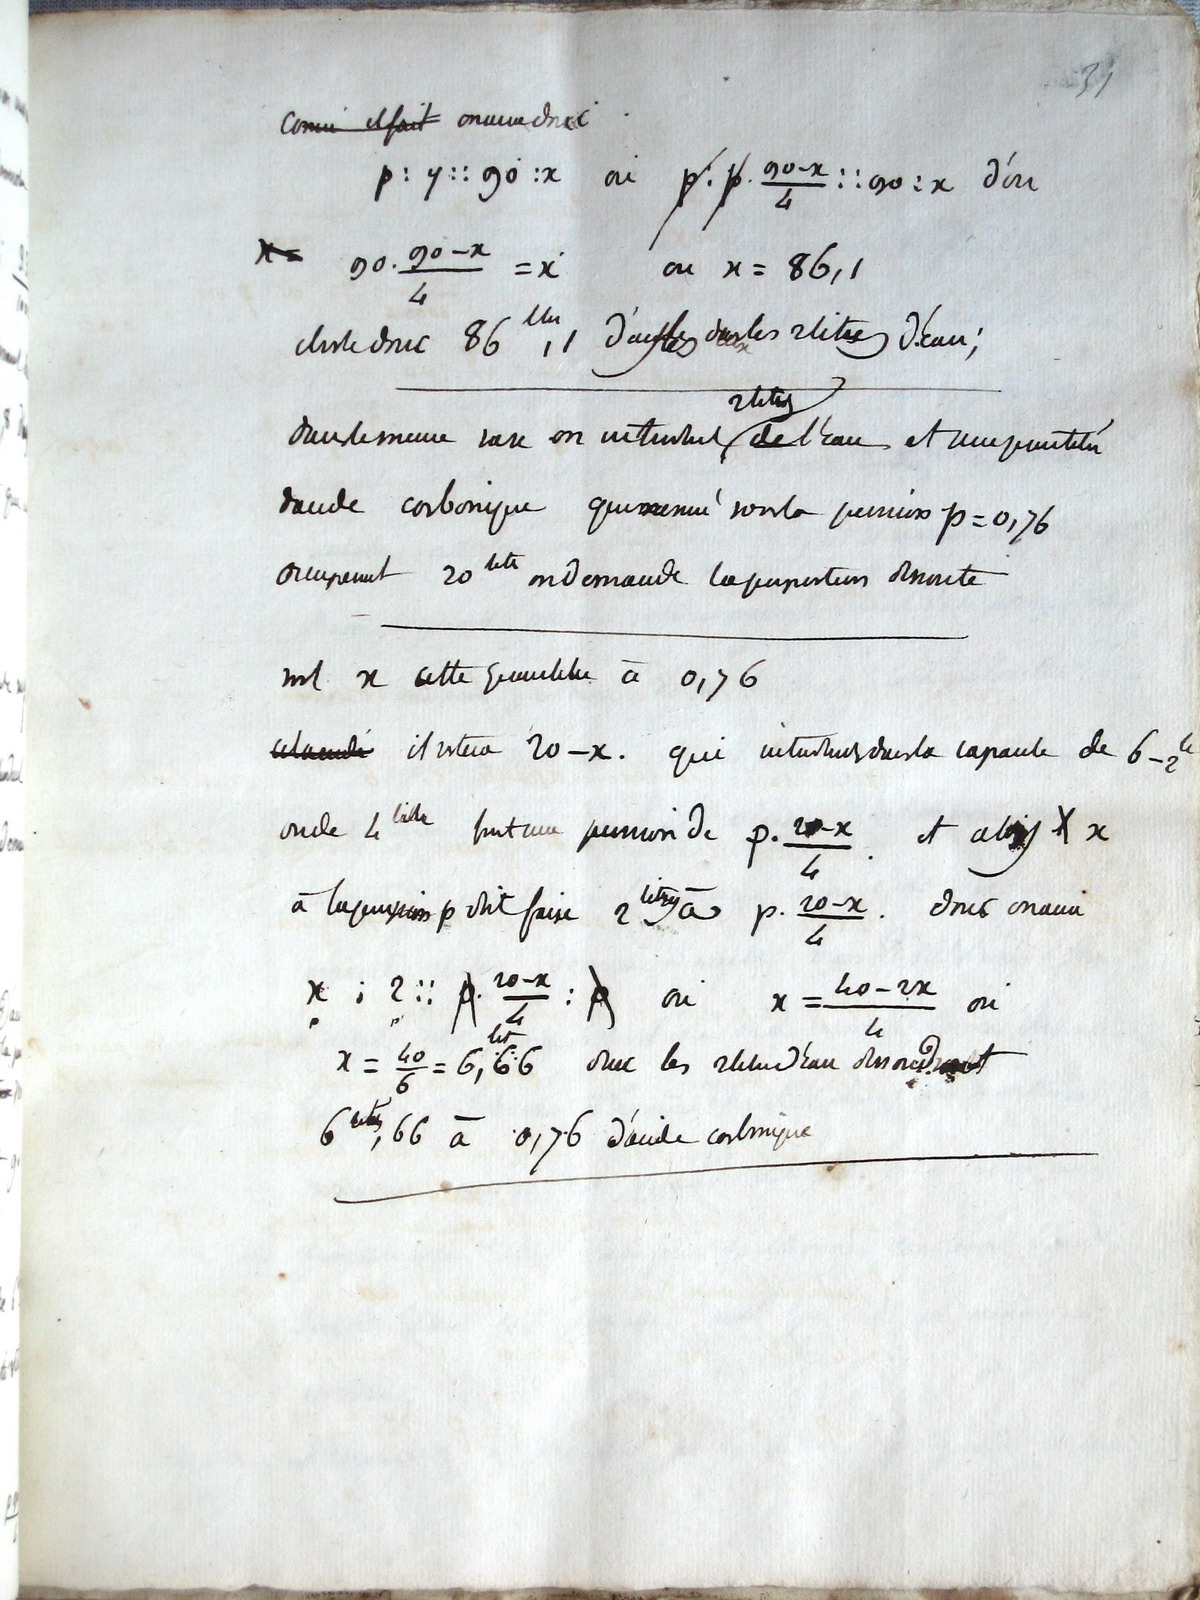 31
comme il fait on aura donc
p : y :: 90 : x ou p : p. 90-x/4 :: 90 : x d'ou
x = 90. 90-x/4 = x ou x = 86,1
donc 86 lit,1 dans les 2 litres d'eau;
2 litres
dans le meme vase on introduit de l'eau et une quantité
d'acide carbonique qui mesuré sous la pression p = 0,76
occupent 20 lit on demande la proportion dissoute
soit x cette quantité à 0,76
il restera 20-x. qui introduit dans la capacité de 6-2 lit
ou de 4 litre font une pression de p. 20-x/4. et alors x
à la pression p doit faire 2 litres à p. 20-x/4. donc on aura
x : 2 :: p. 20-x/4 : p ou x = 40-2x/4 ou
x = 40/6 = 6,66 lit donc les 2 litres d'eau dissoudront
6 litres,66 à 0,76 d'acide carbonique